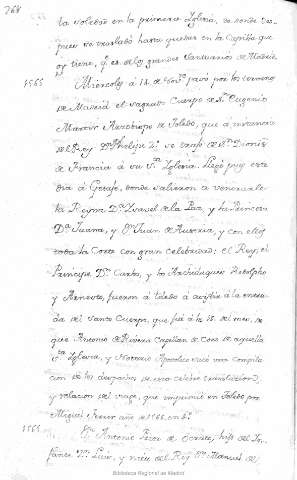 268
la volviò en la primera Iglesia, de donde des-
pues se trasladó hasta quedar en la Capilla que
oy tiene, q.e es de los grandes Santuarios de Madrid.
1565
Miercoles á 14 de Nov.re pasó por los terminos
de Madrid el sagrado Cuerpo de S.n Eugenio
Martir Arzobispo de Toledo, que á instancia
del Rey D.n Phelipe 2.º se trajo de S.n Dionis
de Francia á su S.ta Iglesia. Llegó pues este
dia á Getafe, donde salieron a venerarle
la Reyna D.a Isavel de la Paz, y la Princesa
D.a Juana, y D.n Juan de Austria, y con ellos
toda la Corte con gran celebridad: el Rey, el
Principe D.n Carlos, y los Archiduques Rodolpho
y Arnesto, fueron á toledo á asistir á la entra-
da del Santo Cuerpo, que fué á los 18. del mes, de
que Antonio de Rivera Capellan de Coro de aquella
S.ta Iglesia, y Notario Apostolico sacó una compila
cion de los despachos de esta celebre translacion,
y relacion del viage, que imprimió en Toledo por
Miguel Ferrer año de 1566. en 8.º
D.n Antonio Prior de Crato, hijo del In-
fante D.n Luis, y nieto del Rey D.n Manuel de
Biblioteca Regional de Madrid